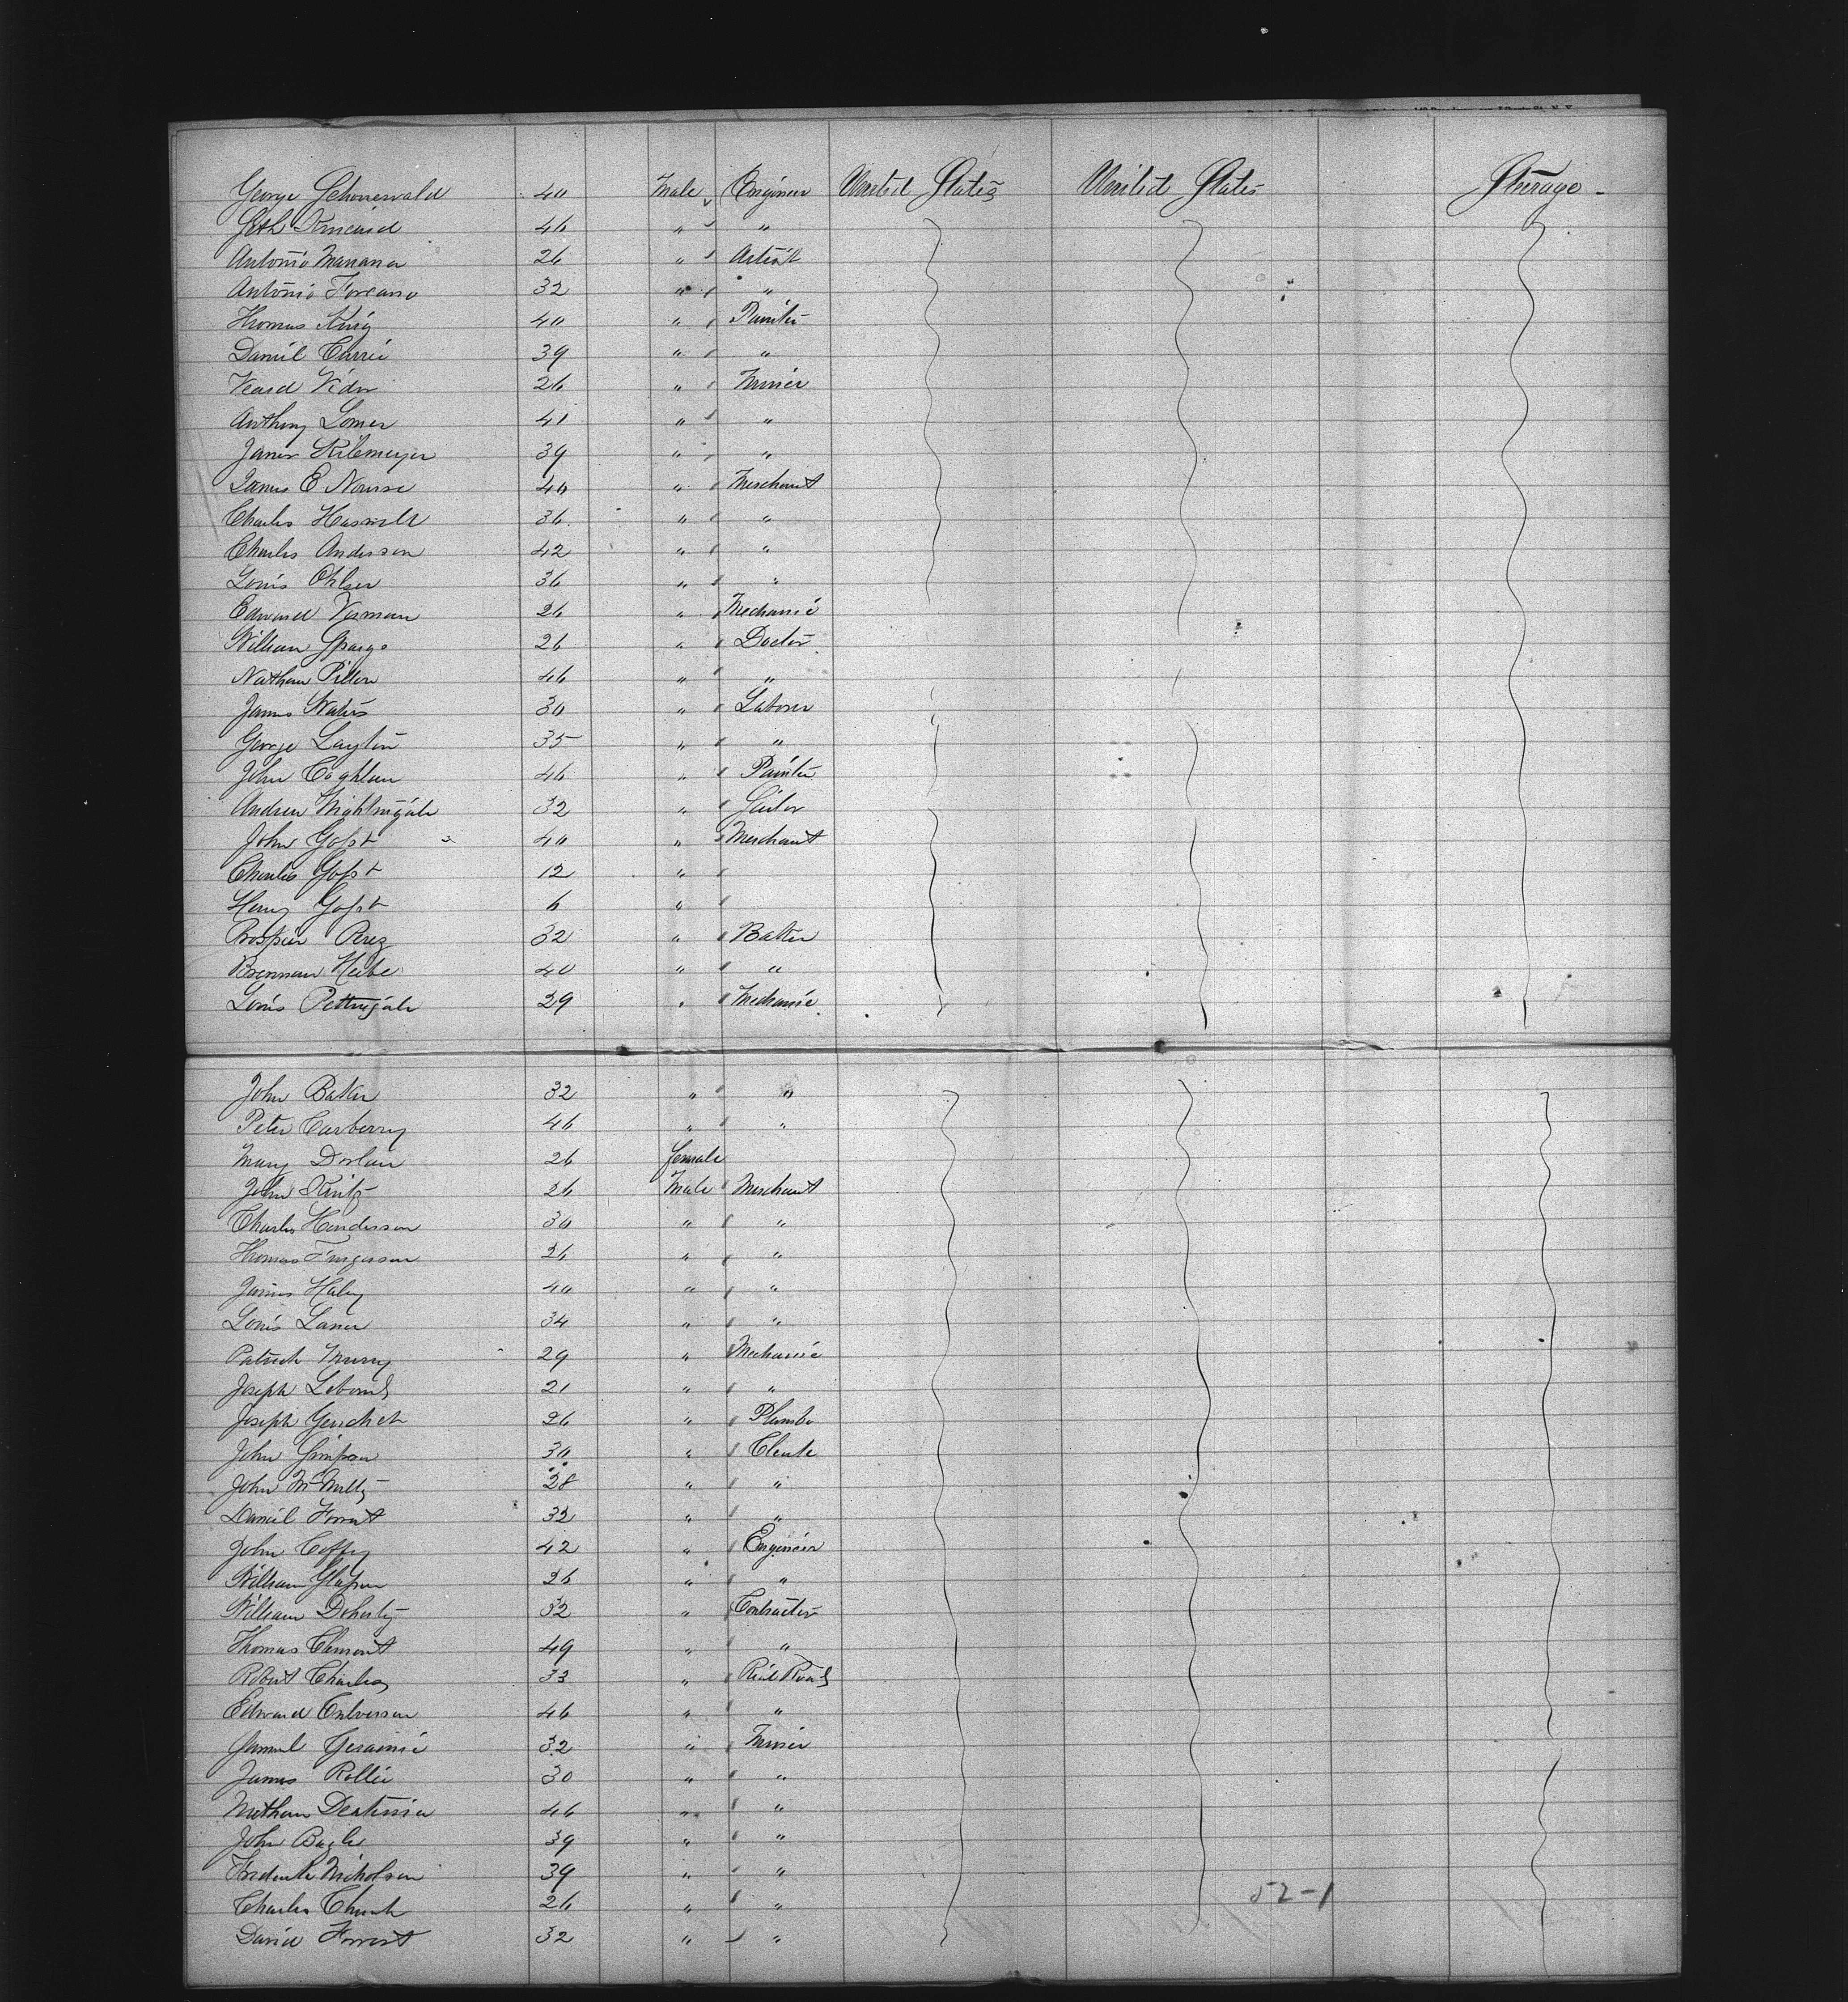 George Schonewald 40 Male Engineer United States United States Steerage
Seth Kincaid 46 " "
Antonio Manana 26 " Artist
Antonio 32 " "
Thomas King 40 " Painter
Daniel Currie 39 " "
26 " Miner
Anthony Lomer 41 " "
39 " "
James E Nourse 40 " Merchant
Charles 36 " "
Charles Anderson 42 " "
Louis Ohlser 36 " "
Edward 26 " Mechanic
William Spargo 26 " Doctor
Nathan 46 " "
James Waters 30 " Laborer
George Layton 35 " "
John Coghlan 46 " Painter
Andrew Nightingale 32 " Sailor
John 40 " Merchant
Charles 12 "
Henry 6 "
Prosper Perez 32 " Baker
Brennan Heibe 40 " "
Louis Pettingale 29 " Mechanic
John Baker 32 " "
Peter Carberry 46 " "
Mary Dorlan 26 female
John 26 Male Merchant
Charles Henderson 30 " "
Thomas Furguson 26 " "
James Haley 40 " "
Louis Laner 34 " "
Patrick Murry 29 " Mechanic
Joseph 21 " "
Joseph 26 " Plumber
John Simpson 30 " Clerk
John McNulty 28 " "
Daniel Forrest 32 " "
John Coffey 42 " Engineer
William 26 " "
William Doherty 32 " Contractor
Thomas Clement 49 " "
Robert Charles 33 " Rail Road
Edward Culverson 46 " "
Samuel 32 " Miner
James Rollie 30 " "
46 " "
John 39 " "
Frederick Nicholson 39 " "
52-1
Charles Church 26 " "
David Forrest 32 " "